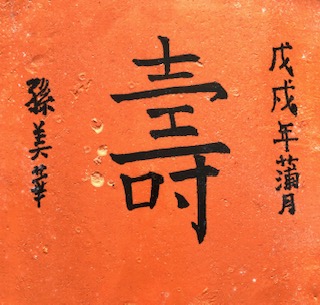 戊戌年蒲月
壽
孫美華